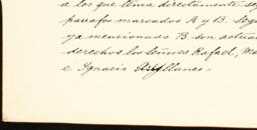 a los que tema directamente se
parrafos marcados A y B. Seg
ya mencionados B son actua
derechos los señores Rafael, Ma
é Ygnacio Arellanes.